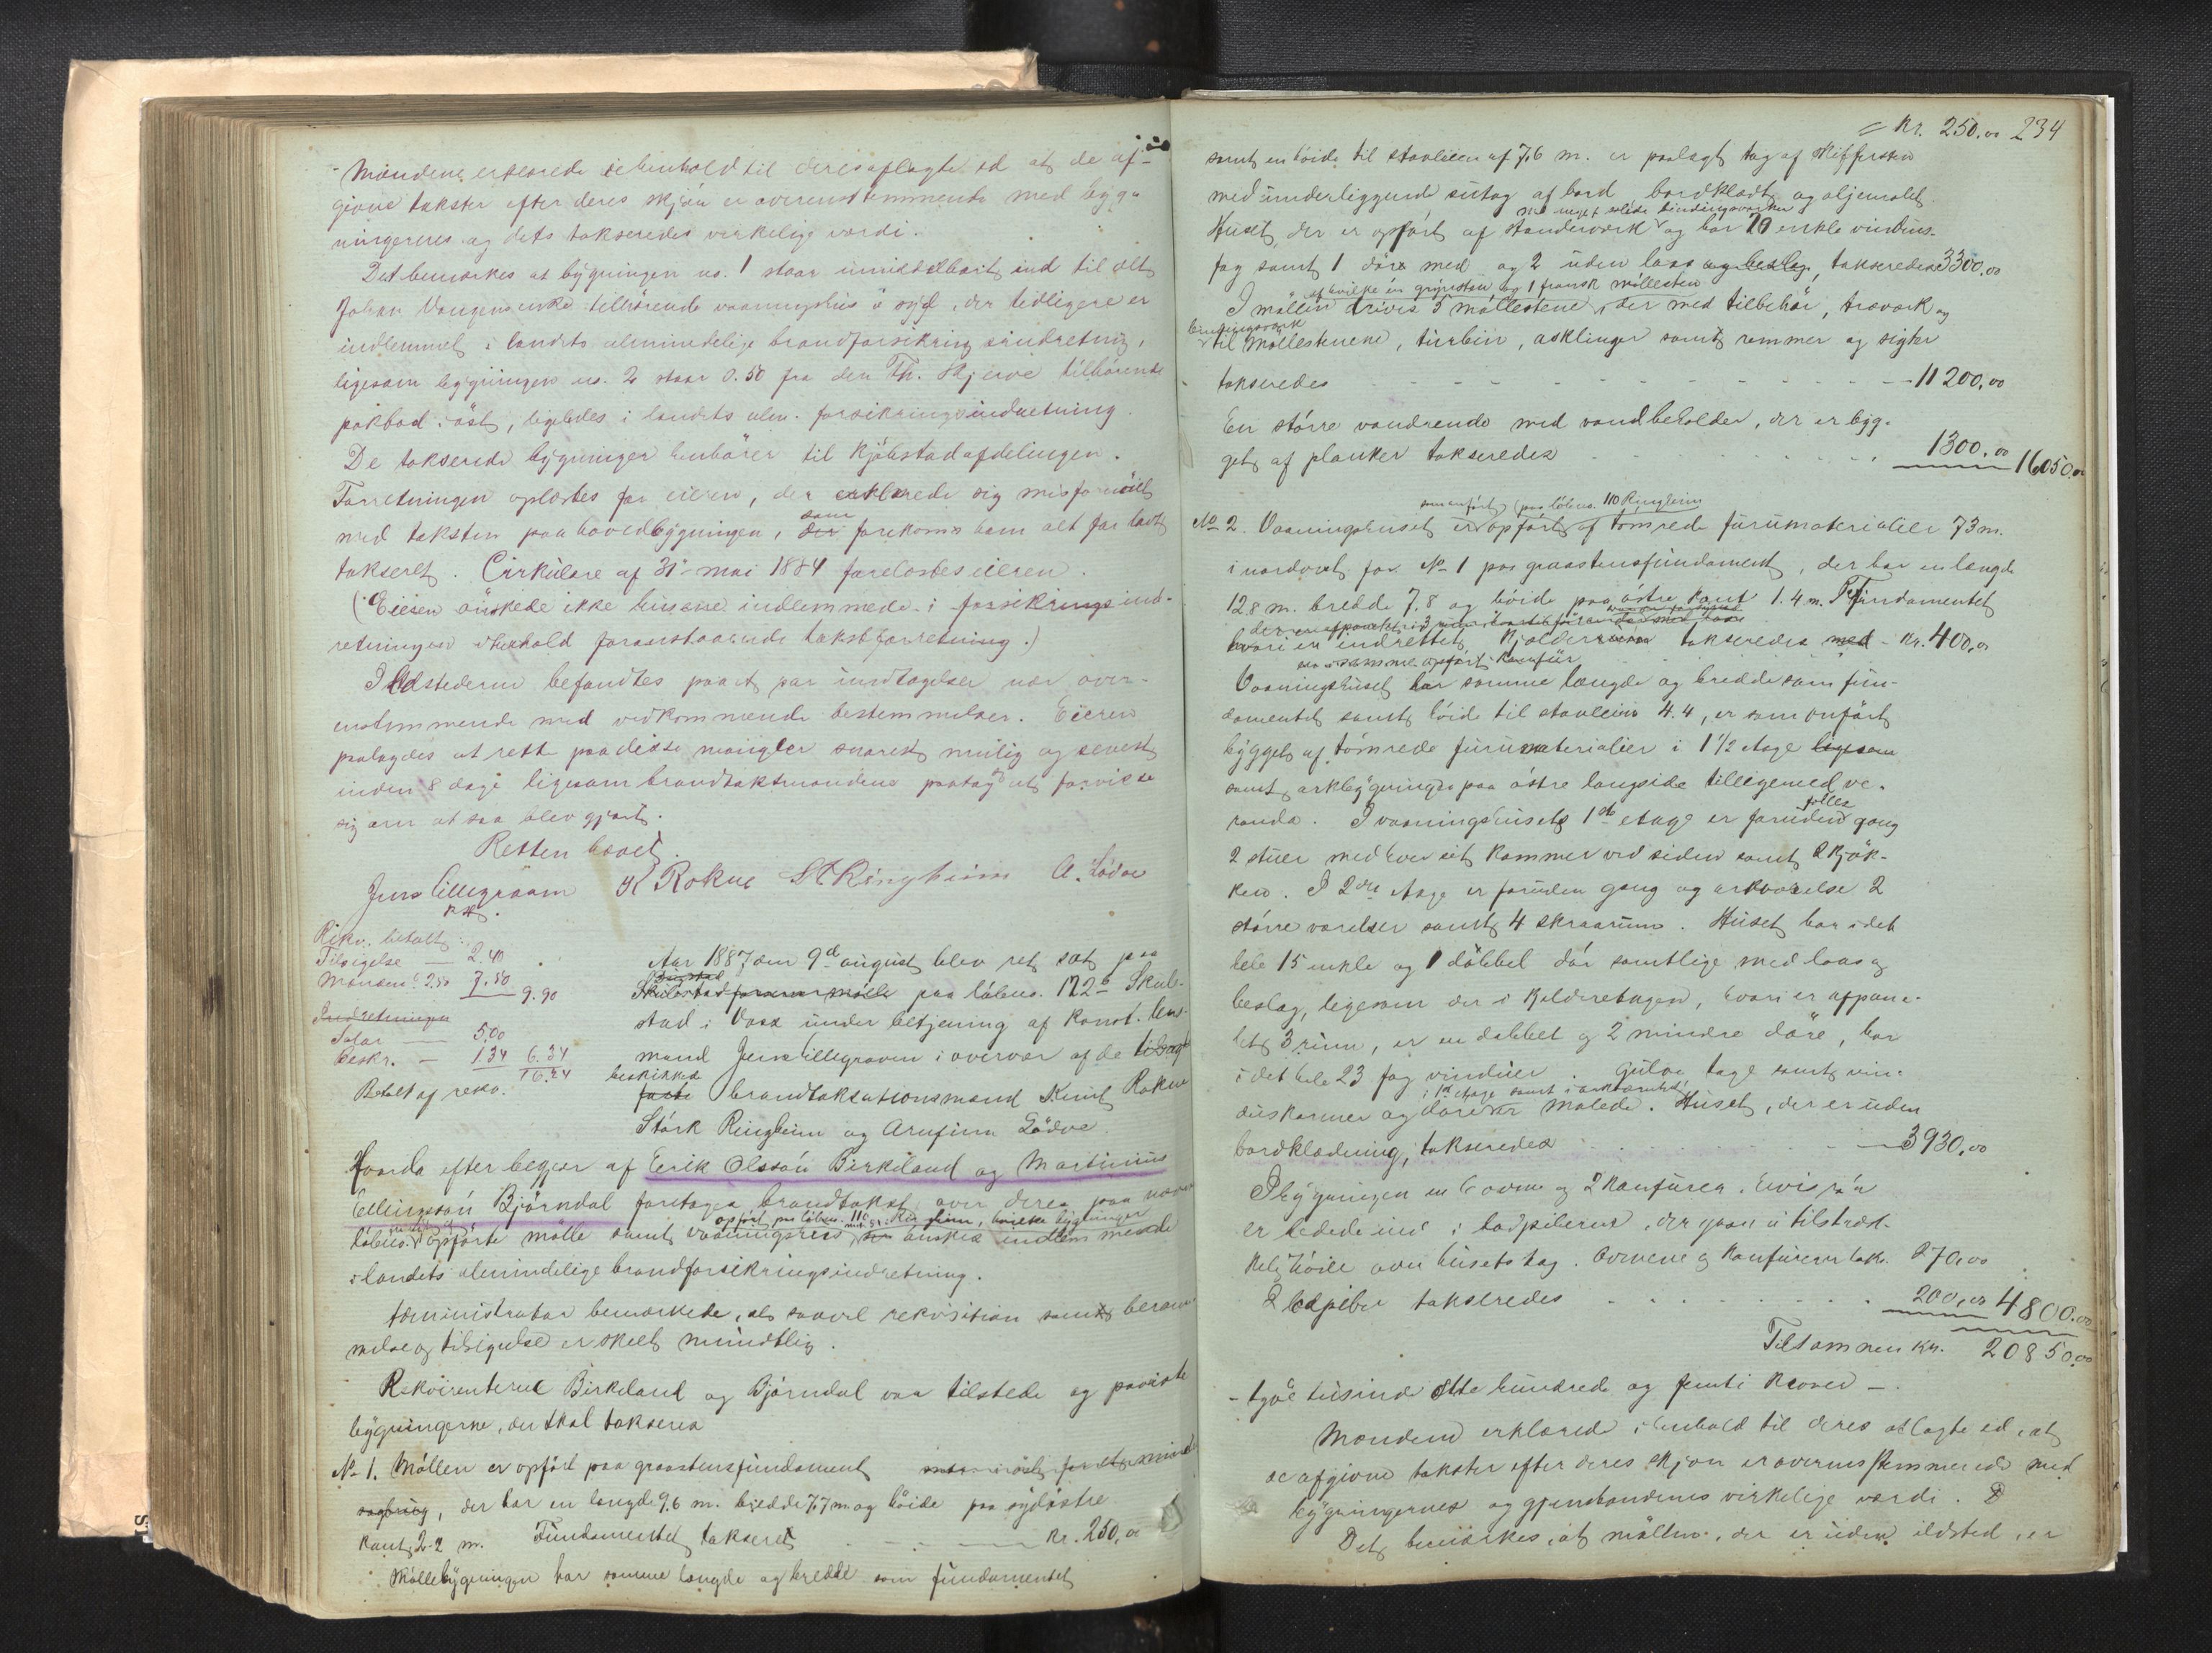 Mændene erklærede i henhold til deres aflagte ed at de af-
givne takster efter deres skjøn er overensstemmende med bygn-
ningernes og dets takseredes virkelige værdi.
Det bemærkes at bygningen no. 1 staar umiddelbart ind til
Johan Vangens enke tilhørende vaaningshus i syd, der tidligere er
indlemmet i landets almindelige brandforsikringsindretning,
ligesom bygningen no. 2 staar 0.50 fra den Th. Skjerve tilhørende
pakbod i øst, ligeledes i landets alm. forsikringsindretning.
De takserede bygninger henhører til Kjøbstadafdelingen.
Forretningen oplæstes for eieren, der erklærede sig misfornøiet
med taksten paa hovedbygningen, som forekom ham alt for lavt
takseret. Cirkulære af 31te mai 1884 forelæstes eieren.
(Eieren ønskede ikke husene indlemmede i forsikringsind-
retningen i henhold foranstaaende takstforretning.)
Ildstederne befandtes paa et par undtagelser nær over-
ensstemmende med vedkommende bestemmelser. Eieren
paalagdes at rette paa disse mangler snarest mulig og senest
inden 8 dage ligesom brandtakstmændene paatog sig at forvisse
sig om at saa blev gjort.
Retten hævet.
Jens Lillegraven K Rokne St Ringheim A. Lødve
Rekv. betalt:
Tilsigelse — 2.40
Mændene á 2.50 7.50
9.90
Indretningen
Salær — 5.00
Beskr. — 1.34 6.34
16.24
Betalt af rekv.
Aar 1887 den 9de august blev ret sat paa
Skulestad paa løbeno. 172b Skule-
stad i Voss under betjening af konst. lens-
mand Jens Lillegraven i overvær af de tilsagte
beskikkede
faste brandtaksationsmænd Knut Rokne
Størk Ringheim og Arnfinn Lødve.
Hvorda efter begjær af Eerik Olssøn Birkeland og Martinius
Ellingssøn Bjørndal foretages brandtakst over deres paa nævnte
opført paa løbeno. 110 Ringheim, hvilke bygninger
løbeno. opførte mølle samt vaaningshus ønskes indlemmede
i landets almindelige brandforsikringsindretning.
Administrator bemærkede, at saavel rekvisition samt beram-
melse og tilsigelse er skeet mundtlig.
Rekvirenterne Birkeland og Bjørndal var tilstede og paaviste
bygningerne, der skal takseres
No 1. Møllen er opført paa graastensfundament
, der har en længde 9,6 m. bredde 7,7 m. og høide paa sydøstre
kant 2.2 m. Fundamentet takseret — kr. 250,00
Møllebygningen har samme længde og bredde som fundamentet
= Kr. 250.00 234
samt en høide til stavleien af 7,6 m. er paalagt tag af skiffersten
med underliggende sutag af bord bordklædt og oljemalet.
med meget solide bindingsværker
Huset, der er opført af standerværk og har 20 enkle vindus-
fag samt 1 dør med og 2 uden laas og beslag, takseredes 3300.00
af hvilke én grynsten og 1 fransk møllesten
I møllen drives 5 møllestene, der med tilbehør, træværk og
bindingsværk
til møllestenene, turbin, asklinger samt remmer og sigter
takseredes — 11200,00
En større vandrende med vandbeholder, der er byg-
get af planker takseredes 1300.00 16050.00
somenført paa løbeno. 110 Ringheim
No 2. Vaaningshuset er opført af tømrede furumaterialier 73 m.
i nordvest for No 1 paa graastensfundament, der har en længde
12.8 m. bredde 7.8 og høide paa østre kant 1.4 m. Fundamentet
hvori er indrettet kjælder takseredes med — kr. 400,00
Vaaningshuset har samme længde og bredde som fun-
damentet samt høide til stavleien 4.4, er som anført
bygget af tømrede furumaterialier i 1½ etage ligesom
samt arkbygningen paa østre langside tilligemed ve-
randa. I vaaningshusets 1ste etage er foruden fælles gang
2 stuer med hver sit kammer ved siden samt 2 kjøk-
ken. I 2den etage er foruden gang og arkværelse 2
større værelser samt 4 skraarum. Huset har i det
hele 15 enkle og 1 dobbel dør samtlige med laas og
beslag, ligesom der i kjelderetagen, hvori er afpane-
let 3 rum, er en dobbel og 2 mindre døre, har
i det hele 23 fag vinduer. Gulve tage samt vin-
i 1st etage samt i arkværelset
duskarmer og døre er malede. Huset, der er uden
bordklædning, takseredes — 3930,00
I bygningen er 6 ovne og 2 kamfurer, hvis rør
er ledede ind i ladpiberne, der gaar i tilstræk-
kelig høide over husets tag. Ovnene og kamfurerne taks. 270,00
2 ladpiber takseredes 200,00 4800.00
Tilsammen kr. 20850.00
— tyve tusind otte hundrede og femti kroner —.
Mændene erklærede i henhold til deres aflagte ed, at
de afgivne takster efter deres skjøn er overensstemmende med
bygningernes og gjenstandenes virkelige værdi.
Det bemærkes, at møllen, der er uden ildsted, er